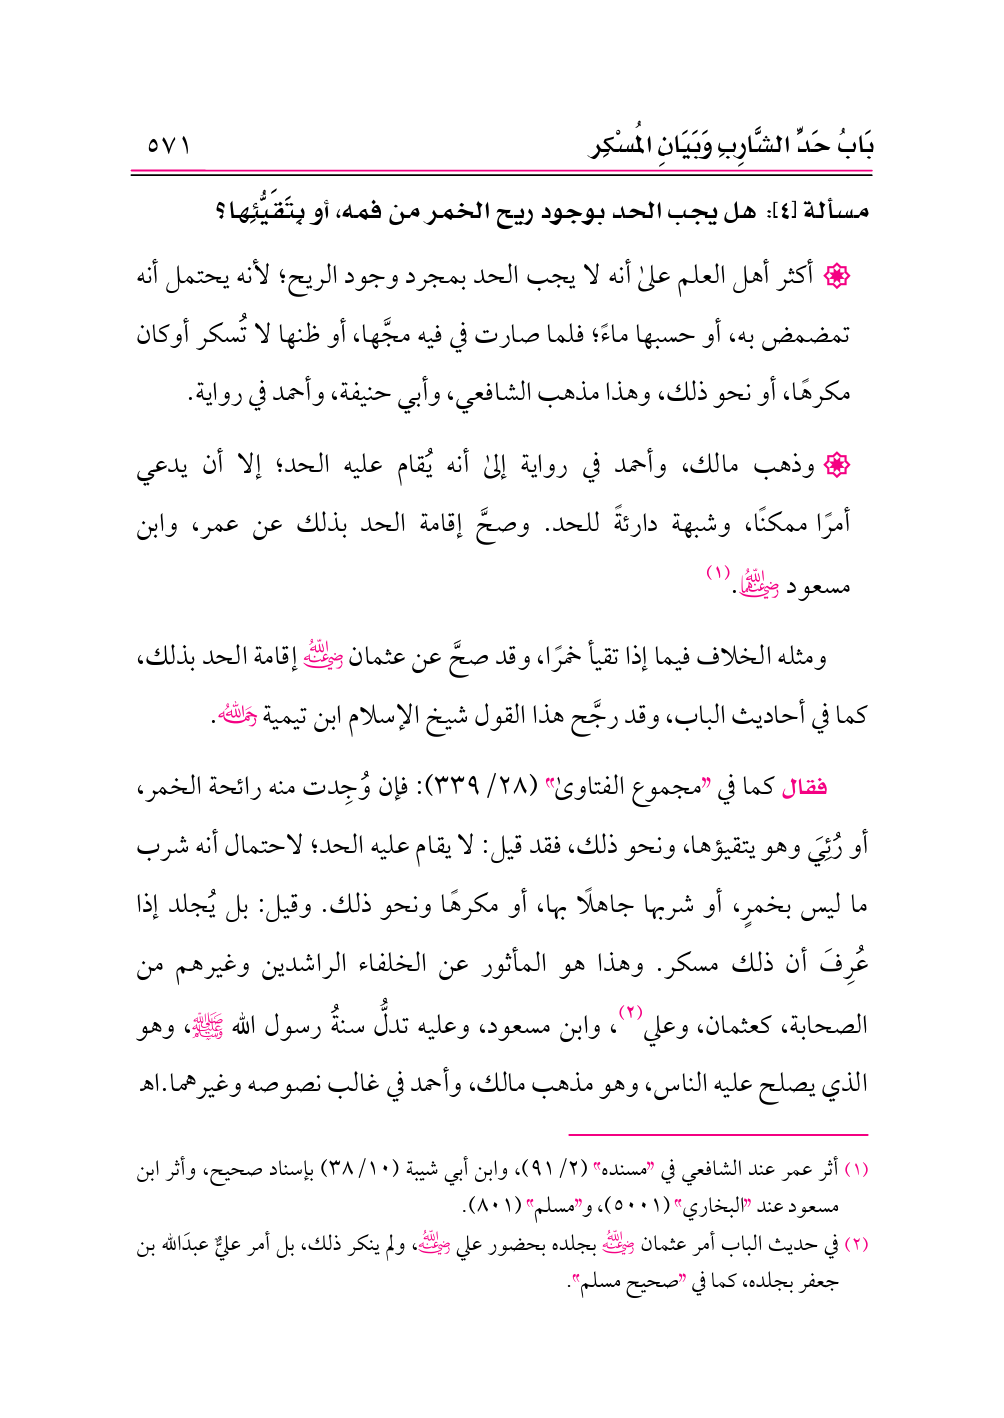 بَابُ حَدِّ الشَّارِبِ وَبَيَانِ المُسْكِرِ ٥٧١
مسألة [٤]: هل يجب الحد بوجود ريح الخمر من فمه، أو بِتَقَيُّئِها؟
أكثر أهل العلم علىٰ أنه لا يجب الحد بمجرد وجود الريح؛ لأنه يحتمل أنه
تمضمض به، أو حسبها ماءً؛ فلما صارت في فيه مجَّها، أو ظنها لا تُسكر أوكان
مكرهًا، أو نحو ذلك، وهذا مذهب الشافعي، وأبي حنيفة، وأحمد في رواية.
وذهب مالك، وأحمد في رواية إلىٰ أنه يُقام عليه الحد؛ إلا أن يدعي
أمرًا ممكنًا، وشبهة دارئةً للحد. وصحَّ إقامة الحد بذلك عن عمر، وابن
مسعود رضي الله عنهما.(١)
ومثله الخلاف فيما إذا تقيأ خمرًا، وقد صحَّ عن عثمان رضي الله عنه إقامة الحد بذلك،
كما في أحاديث الباب، وقد رجَّح هذا القول شيخ الإسلام ابن تيمية رحمه الله.
فقال كما في "مجموع الفتاوىٰ" (٢٨/ ٣٣٩): فإن وُجِدت منه رائحة الخمر،
أو رُئِيَ وهو يتقيؤها، ونحو ذلك، فقد قيل: لا يقام عليه الحد؛ لاحتمال أنه شرب
ما ليس بخمرٍ، أو شربها جاهلًا بها، أو مكرهًا ونحو ذلك. وقيل: بل يُجلد إذا
عُرِفَ أن ذلك مسكر. وهذا هو المأثور عن الخلفاء الراشدين وغيرهم من
الصحابة، كعثمان، وعلي(٢)، وابن مسعود، وعليه تدلُّ سنةُ رسول الله ﷺ، وهو
الذي يصلح عليه الناس، وهو مذهب مالك، وأحمد في غالب نصوصه وغيرهما.اهـ
(١) أثر عمر عند الشافعي في "مسنده" (٢/ ٩١)، وابن أبي شيبة (١٠/ ٣٨) بإسناد صحيح، وأثر ابن
مسعود عند "البخاري" (٥٠٠١)، و"مسلم" (٨٠١).
(٢) في حديث الباب أمر عثمان رضي الله عنه بجلده بحضور علي رضي الله عنه، ولم ينكر ذلك، بل أمر عليٌّ عبدَالله بن
جعفر بجلده، كما في "صحيح مسلم".